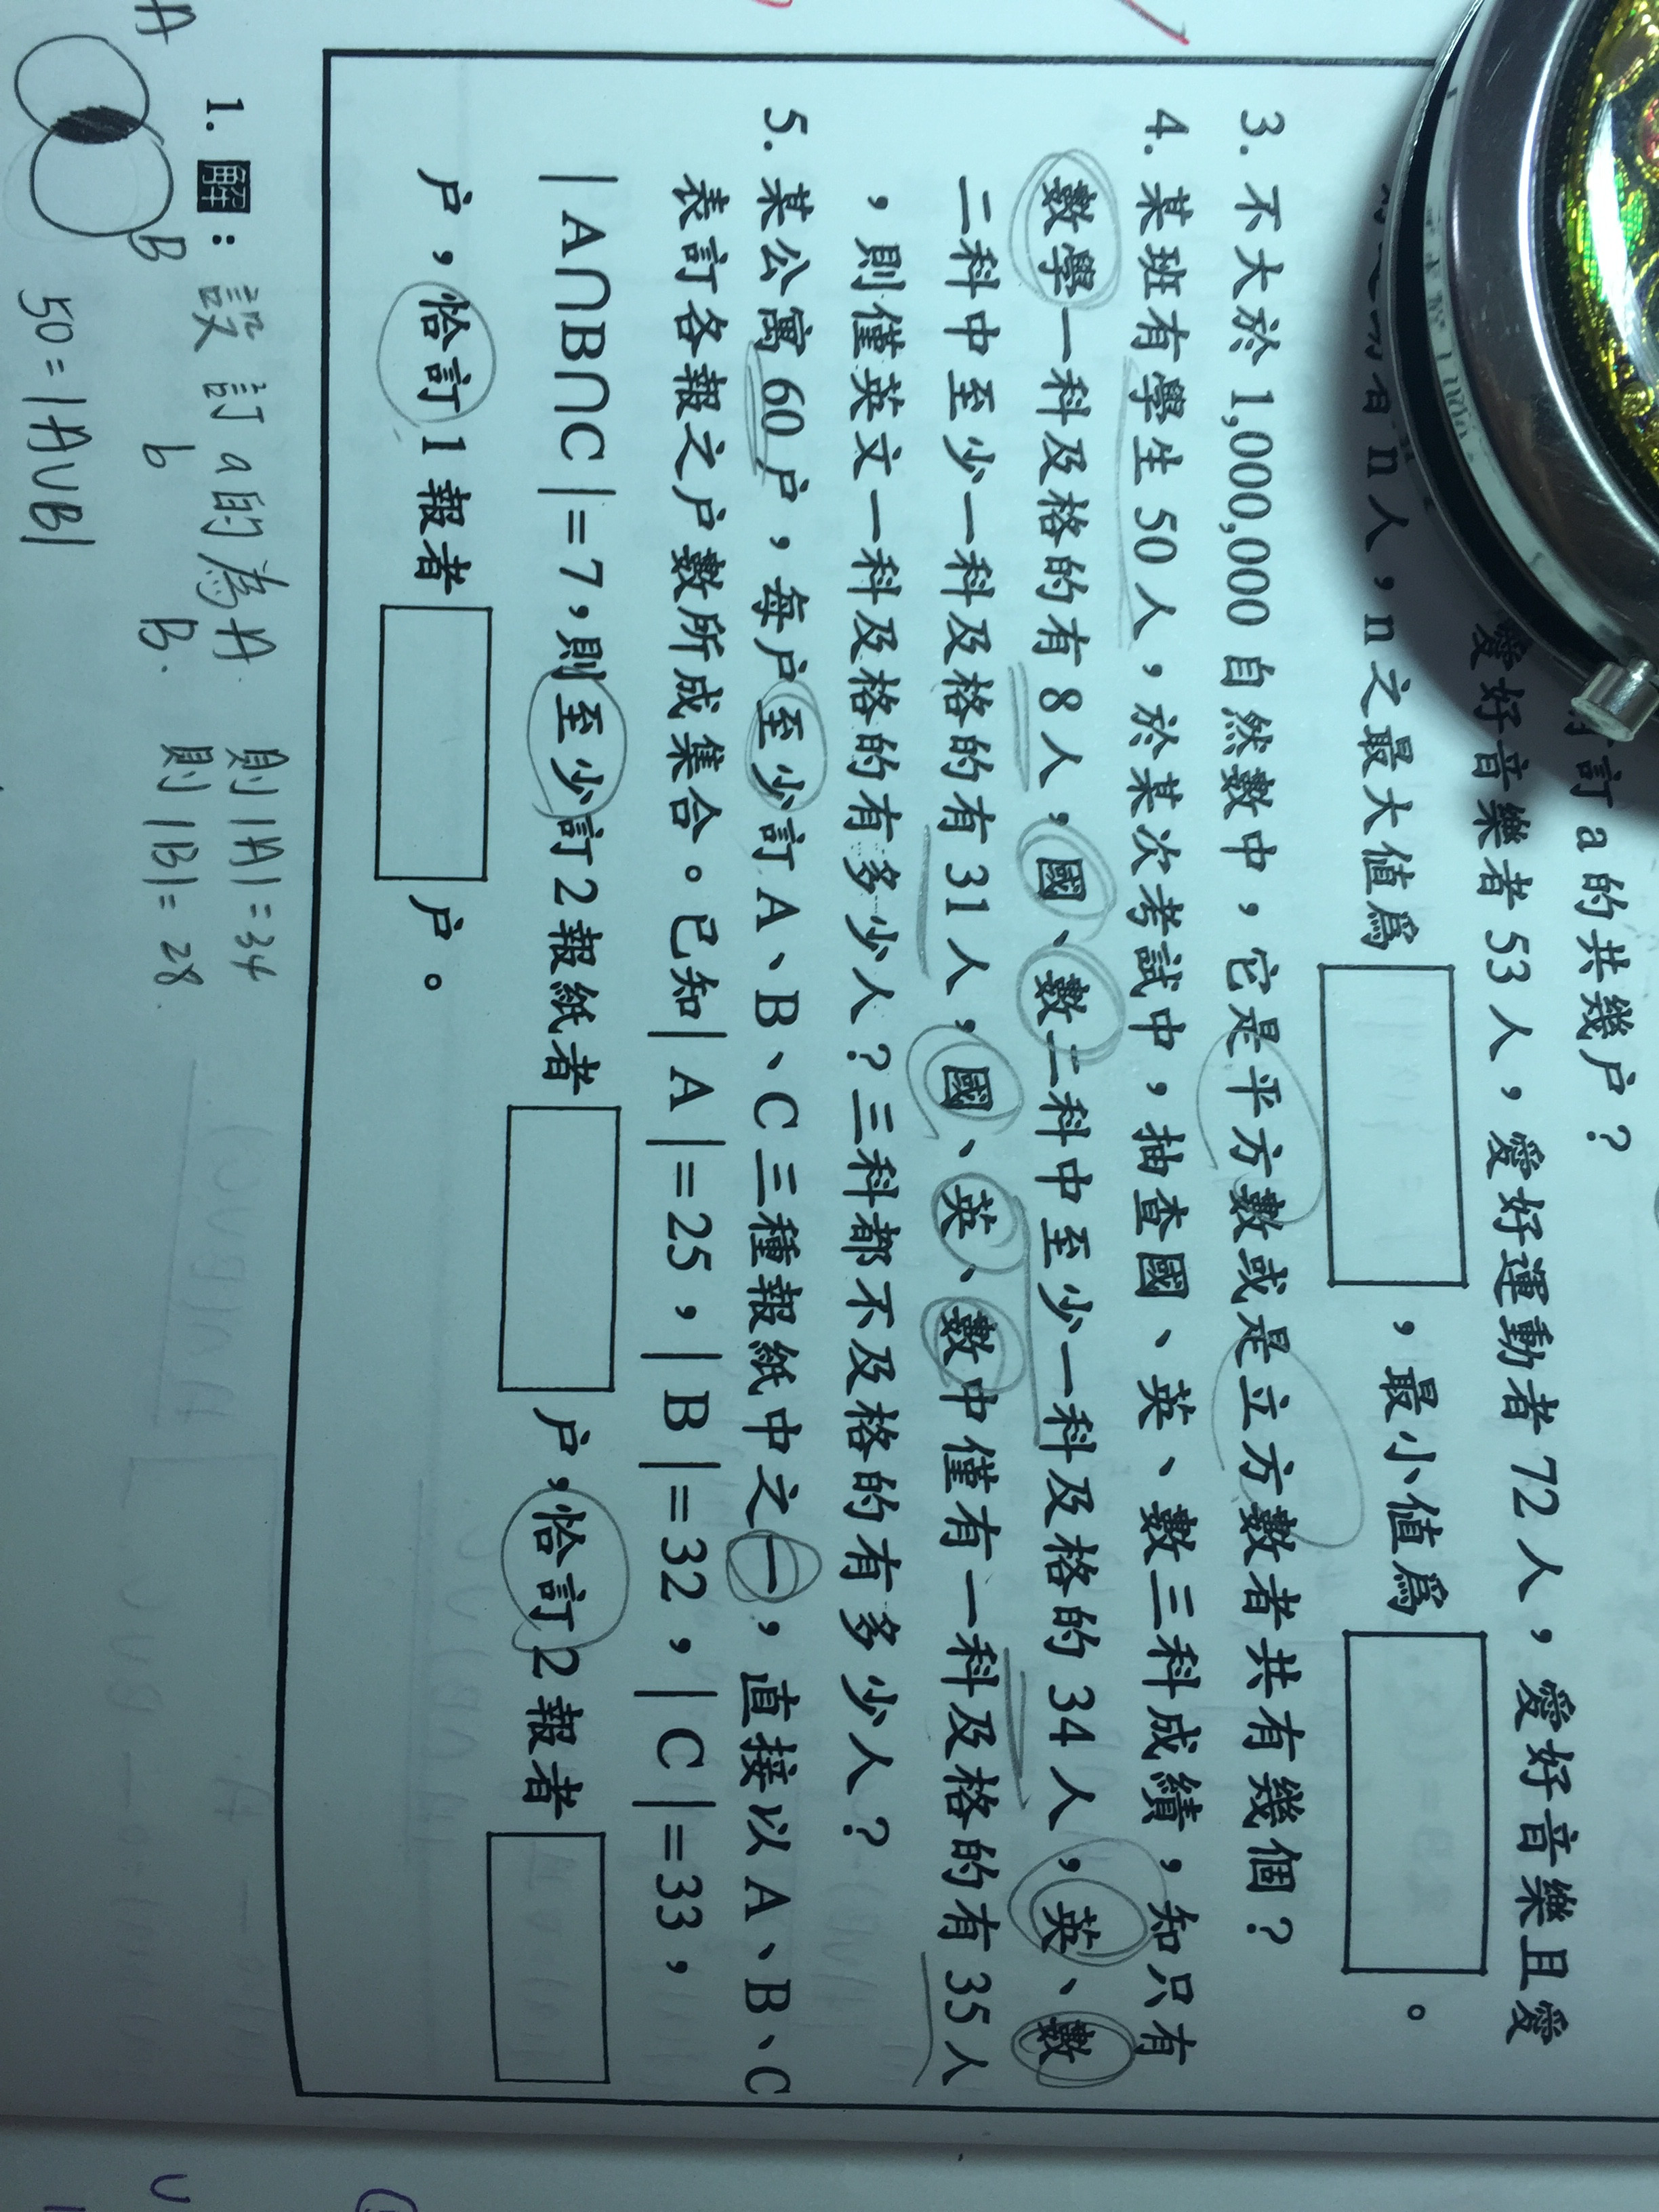 訂 a 的共幾户？
愛好音樂者 53 人，愛好運動者 72 人，愛好音樂且愛
n 人，n 之最大值爲　，最小值爲　。
3. 不大於 1,000,000 自然數中，它是平方數或是立方數者共有幾個？
4. 某班有學生 50 人，於某次考試中，抽查國、英、數三科成績，知只有
數學一科及格的有 8 人，國、數二科中至少一科及格的 34 人，英、數
二科中至少一科及格的有 31 人，國、英、數中僅有一科及格的有 35 人
，則僅英文一科及格的有多少人？三科都不及格的有多少人？
5. 某公寓 60 户，每户至少訂 A、B、C 三種報紙中之一，直接以 A、B、C
表訂各報之户數所成集合。已知|A|=25，|B|=32，|C|=33，
|A∩B∩C|=7，則至少訂2報紙者　户，恰訂2報者
户，恰訂1報者　户。
1. 解：設 訂 a 的為 A 則 |A| = 34
b B. 則 |B| = 28
A B
50 = |A∪B|